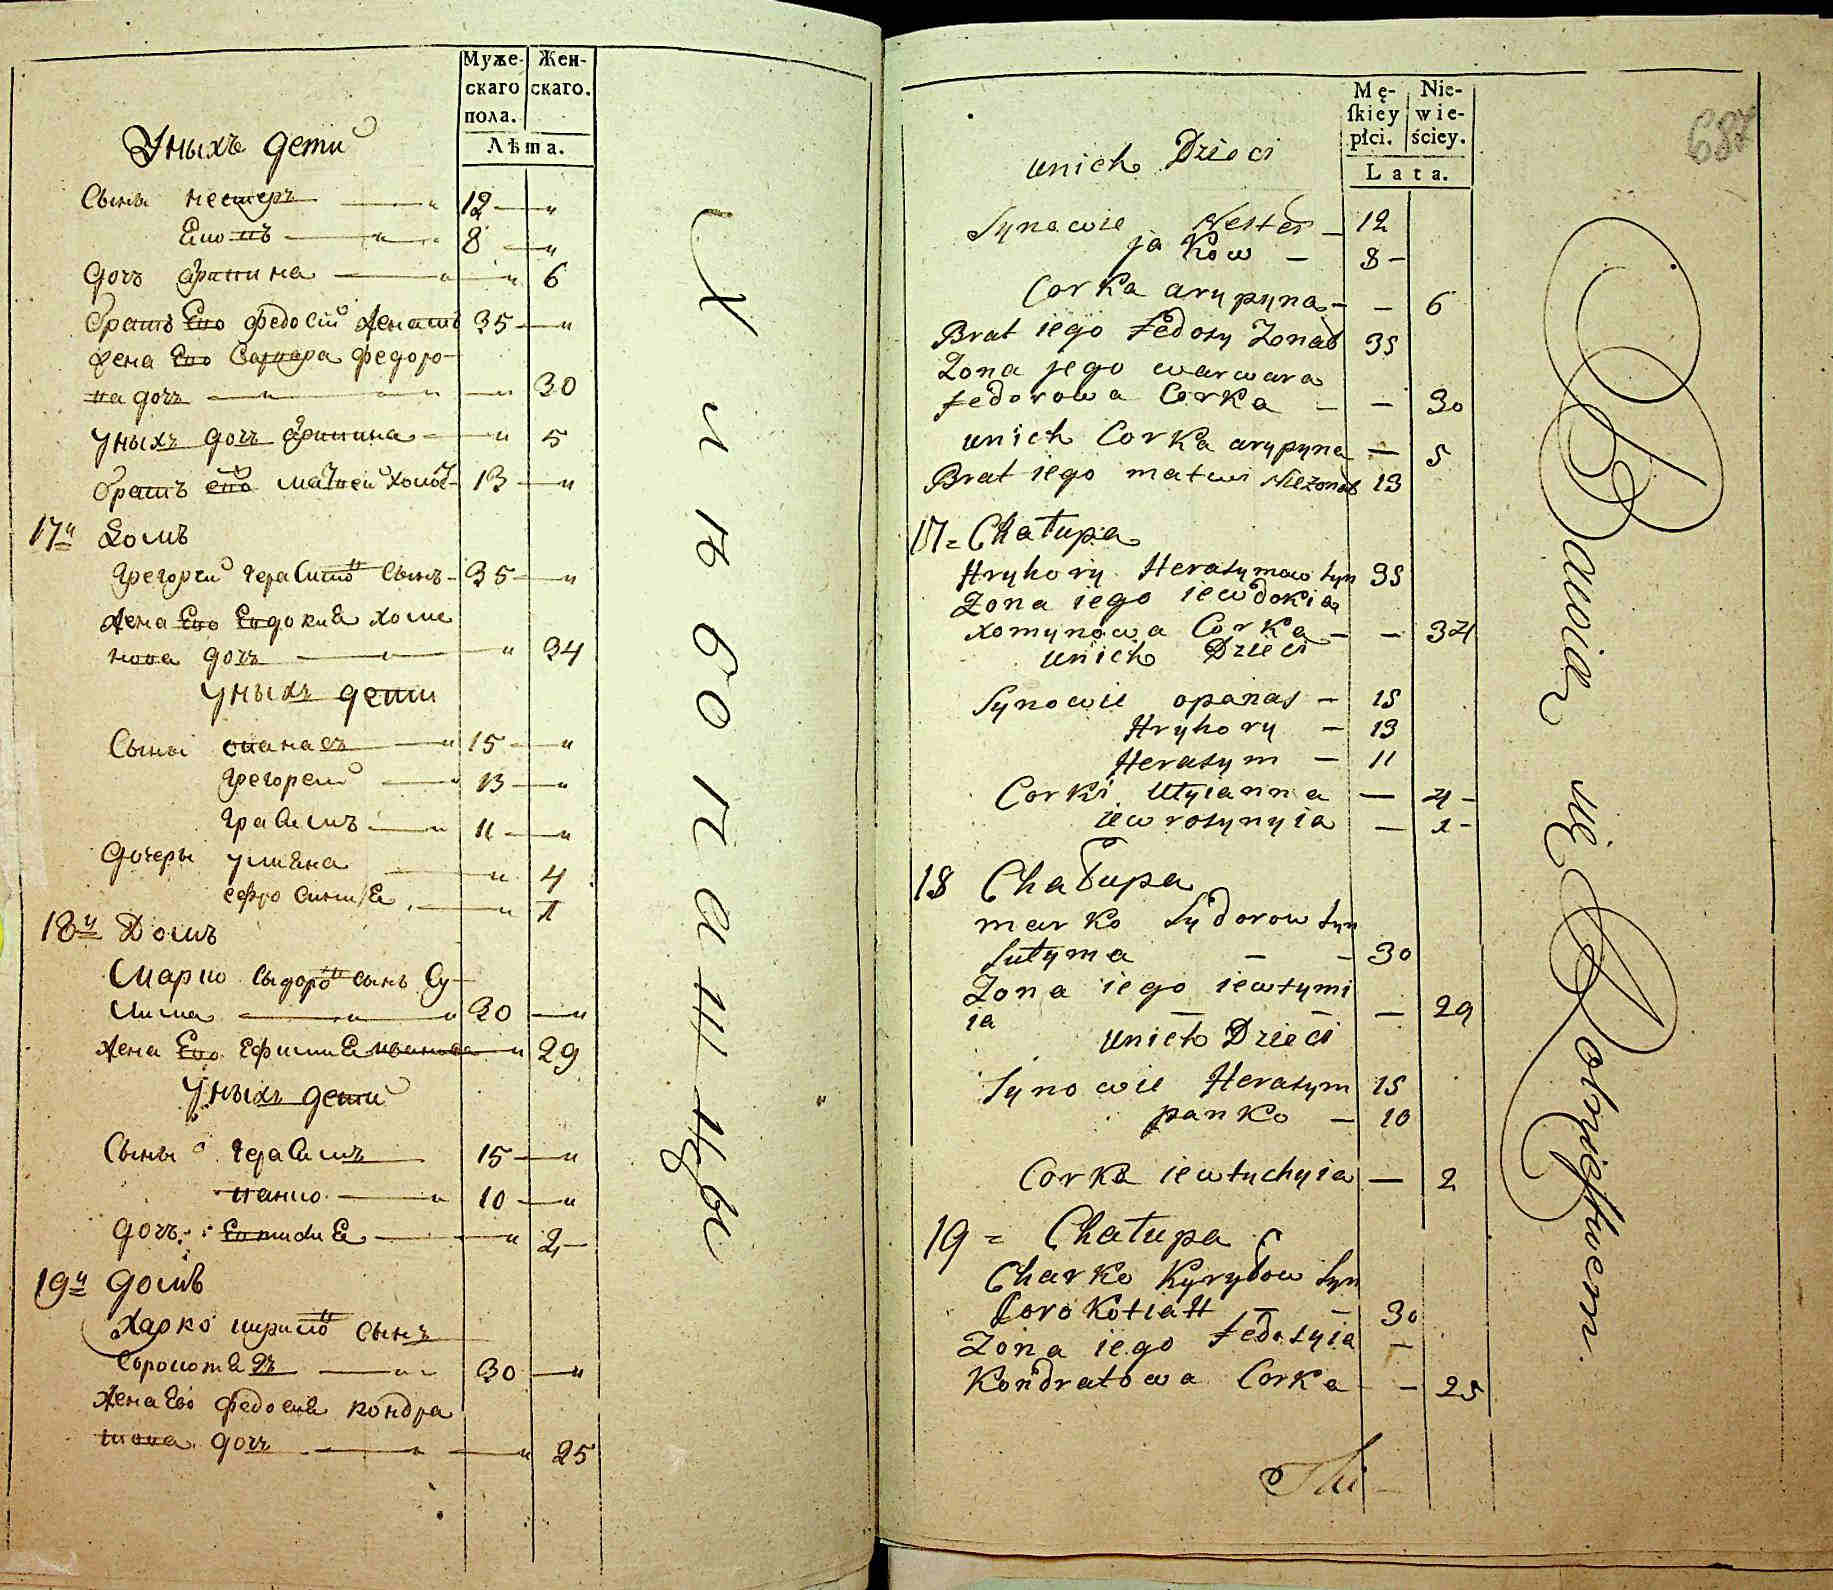 Муже-
скаго
пола.
Жен-
скаго.
Лѣта.
Уныхъ дети
Сыны Нестеръ 12
Яковъ 8
дочь 6
братъ Его Федосiй Женатъ 35
Жена Его Варвара Федоро-
ва дочь 30
уныхъ дочь 5
братъ его Матвей холост 13
17й Домъ
Грегорей Герасимов Сынъ 35
Жена Его Евдокия хоми
нова дочь 34
уныхъ дети
Сыны опанасъ 15
Грегорей 13
Герасимъ 11
Дочеры улияна 4
ефросиния 1
18й Домъ
Марко Сыдоров сынъ Су-
лима 30
Жена Его Ефимия Иванова 29
уныхъ дети
Сыны Герасимъ 15
панко 10
дочь Евтихия 2
19й домъ
Харко Кирилов Сынъ
Сорокотягъ 30
Жена Его Федосия Кондра
това дочь 25
Хлѣбопашцы
Mę-
skiey
płci.
Nie-
wie-
ściey.
Lata.
687
unich Dzieci
Synowie Nester 12
jakow 8
Corka arypyna 6
Brat iego fedosy Zonat 35
Zona jego warwara
fedorowa Corka 30
unich Corka arypyna 5
Brat iego matwi Niezonat 13
17 = Chałupa
Hryhory Herasymow syn 35
Zona iego iewdokia
xomynowa Corka 34
unich Dzieci
Synowie opanas 15
Hryhory 13
Herasym 11
Corki Ulyianna 4
iewrosynyia 1
18 Chałupa
marko Sydorow syn
Sułyma 30
Zona iego iewtymi
ia 29
unich Dzieci
Synowie Herasym 15
panko 10
Corka iewtychyia 2
19 = Chałupa
Charko Kyryłow syn
Sorokotiah 30
Zona iego fedosyia
Kondratowa Corka 25
Bawią się Rolnictwem.